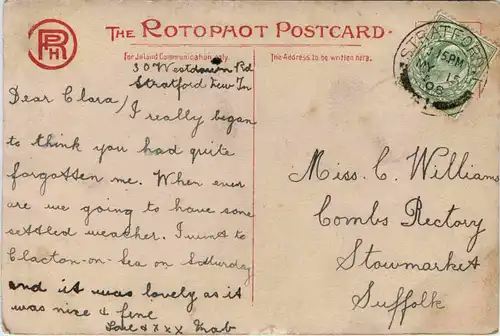 RPH
THE ROTOPHOT POSTCARD
For Inland Communication only.
The Address to be written here.
30 Westdown Rd
Stratford New Tn
Dear Clara/
I really began
to think you had quite
forgotten me. When ever
are we going to have some
settled weather. I went to
Clacton-on-Sea on Saturday
and it was lovely as it
was nice & fine
Love & x x x Mab
STRATFORD
5PM
15
08
Miss. C. Williams
Combs Rectory
Stowmarket
Suffolk